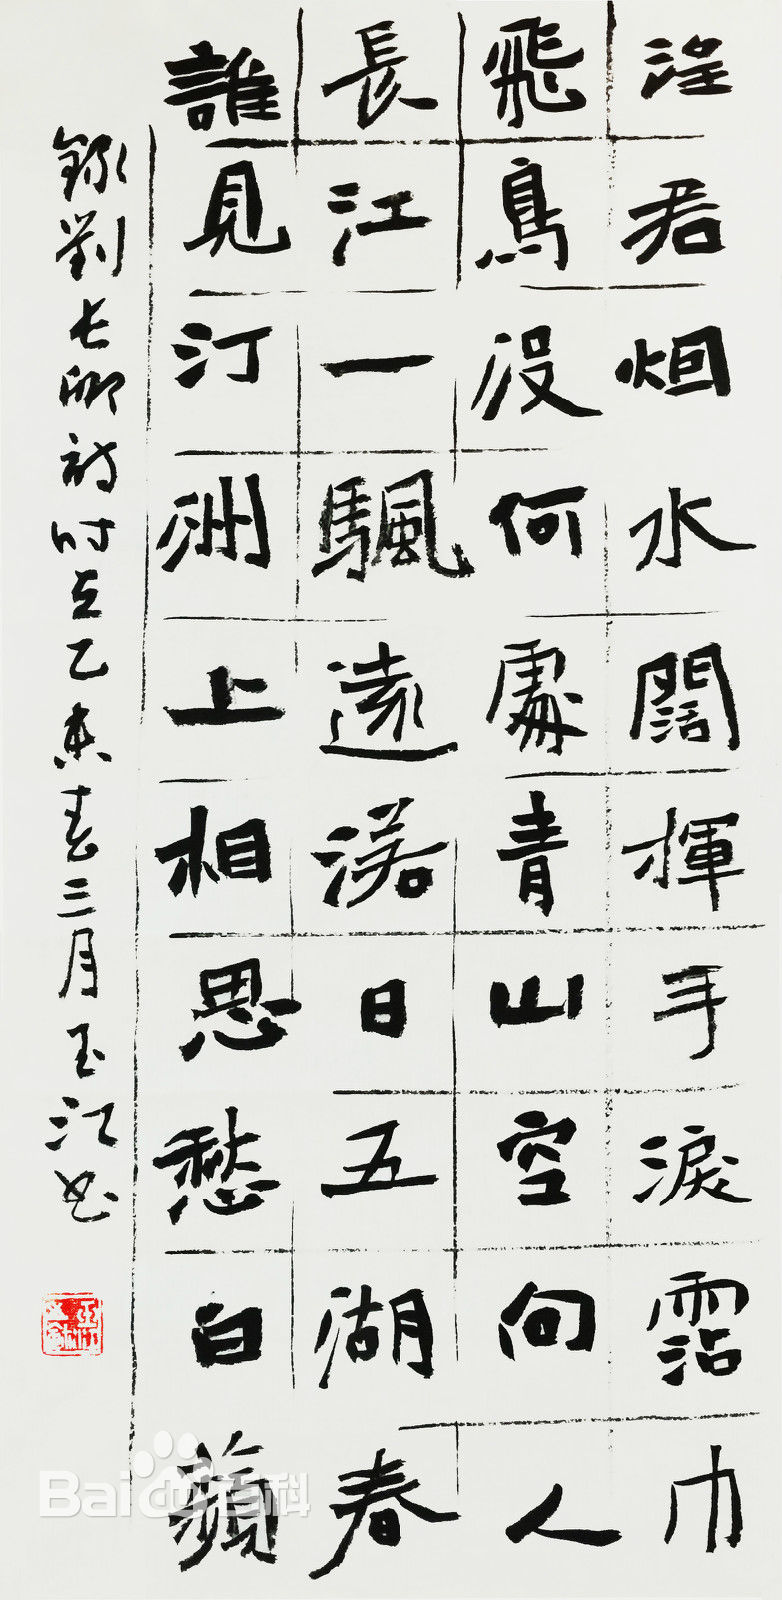 望君烟水闊揮手淚霑巾
飛鳥没何處青山空向人
長江一颿遠落日五湖春
誰見汀洲上相思愁白蘋
錄劉长卿詩时在乙未春三月玉江书
Bai百科